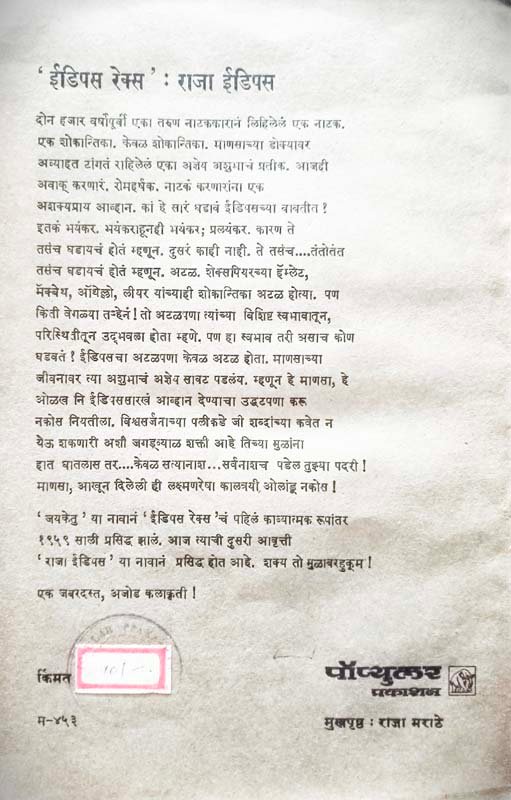 ‘ ईडिपस रेक्स ’ : राजा ईडिपस
दोन हजार वर्षांपूर्वी एका तरुण नाटककारानं लिहिलेलं एक नाटक.
एक शोकान्तिका. केवळ शोकान्तिका. माणसाच्या डोक्यावर
अव्याहत टांगतं राहिलेलं एका अज्ञेय अशुभाचं प्रतीक. आजही
अवाक् करणारं. रोमहर्षक. नाटकं करणारांना एक
अशक्यप्राय आव्हान. कां हे सारं घडावं ईडिपसच्या बाबतीत !
इतकं भयंकर. भयंकराहूनही भयंकर; प्रलयंकर. कारण ते
तसंच घडायचं होतं म्हणून. दुसरं काही नाही. ते तसंच....तंतोतंत
तसंच घडायचं होतं म्हणून. अटळ. शेक्सपियरच्या हॅम्लेट,
मॅक्बेथ, ऑथेल्लो, लीयर यांच्याही शोकान्तिका अटळ होत्या. पण
किती वेगळ्या तऱ्हेनं ! तो अटळपणा त्यांच्या विशिष्ट स्वभावातून,
परिस्थितीतून उद्‌भवला होता म्हणे. पण हा स्वभाव तरी असाच कोण
घडवतं ! ईडिपसचा अटळपणा केवळ अटळ होता. माणसाच्या
जीवनावर त्या अशुभाचं अज्ञेय सावट पडलंय. म्हणून हे माणसा, हे
ओळख नि ईडिपससारखं आव्हान देण्याचा उद्धटपणा करू
नकोस नियतीला. विश्वसर्जनाच्या पलीकडे जी शब्दांच्या कवेत न
येऊ शकणारी अशी जगड्व्याळ शक्ती आहे तिच्या मुळांना
हात घातलास तर....केवळ सत्यानाश...सर्वनाशच पडेल तुझ्या पदरी !
माणसा, आखून दिलेली ही लक्ष्मणरेषा कालत्रयी ओलांडू नकोस !
‘ जयकेतु ’ या नावानं ‘ ईडिपस रेक्स ’चं पहिलं काव्यात्मक रूपांतर
१९५९ साली प्रसिद्ध झालं. आज त्याची दुसरी आवृत्ती
‘ राजा ईडिपस ’ या नावानं प्रसिद्ध होत आहे. शक्य तो मुळाबरहुकूम !
एक जबरदस्त, अजोड कलाकृती !
किंमत
पॉप्युलर
प्रकाशन
म-४५३
मुखपृष्ठ : राजा मराठे